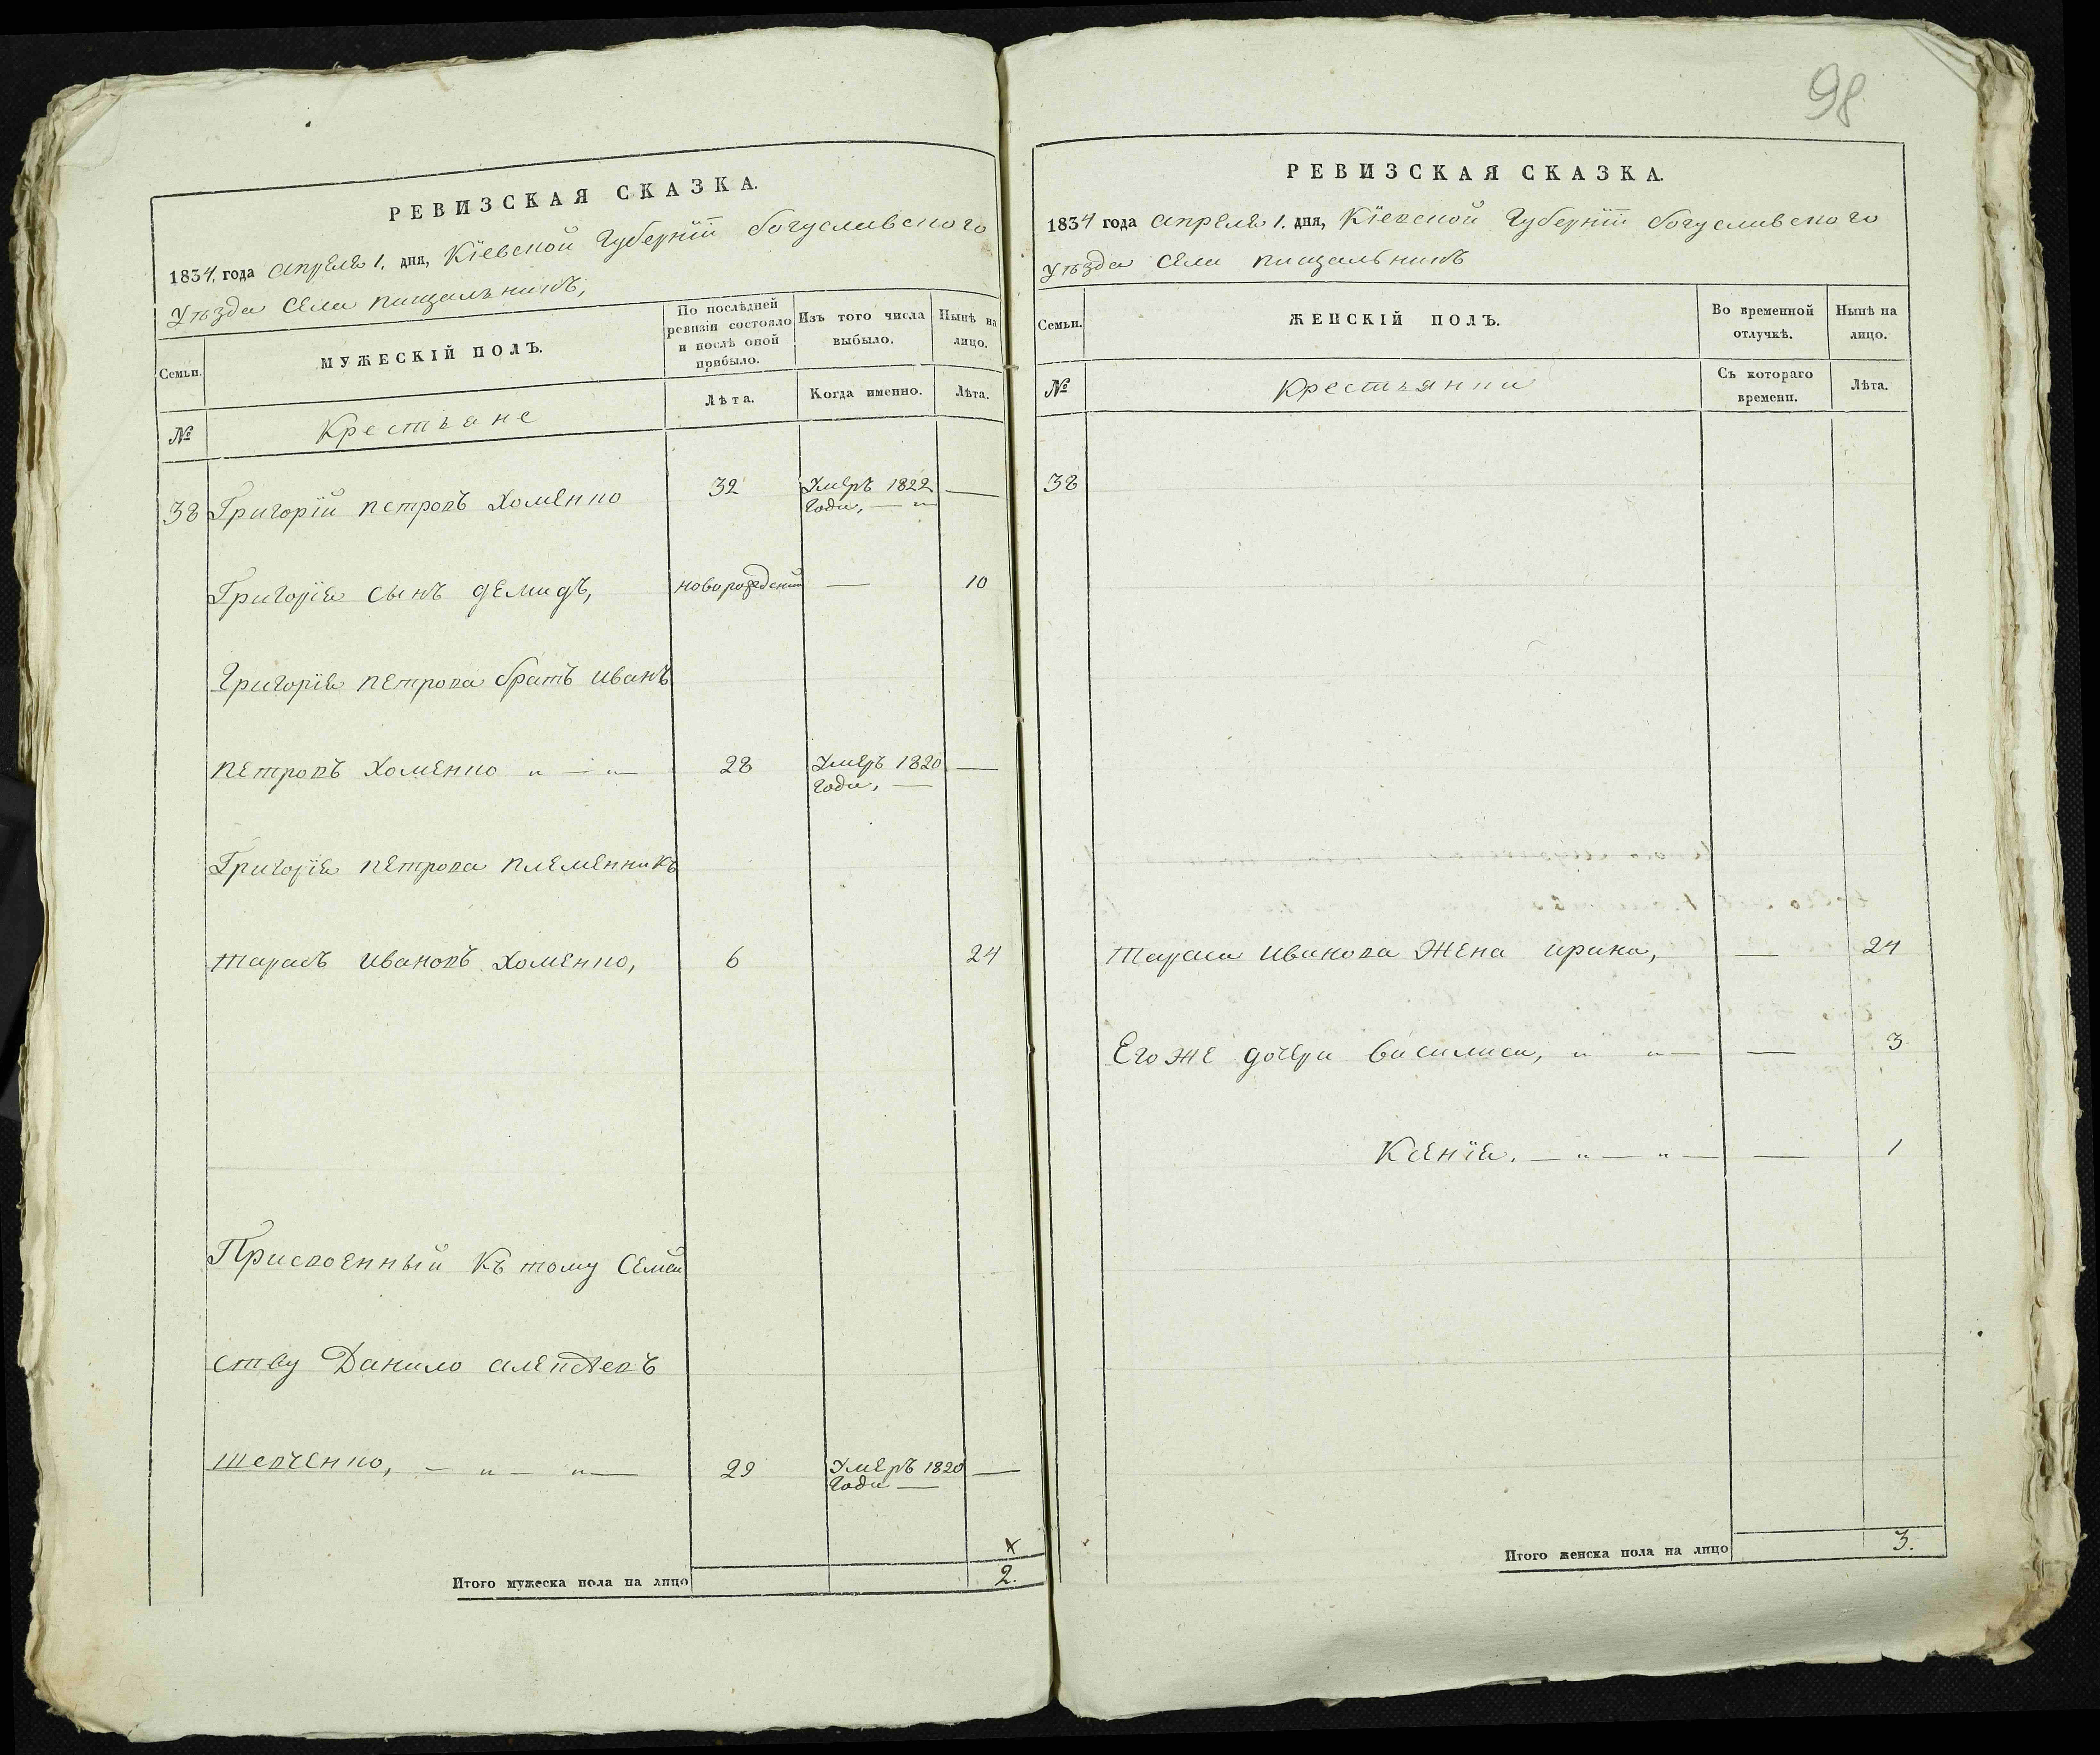 98
РЕВИЗСКАЯ СКАЗКА.
1834. года апреля 1. дня, Кіевской Губерніи богуславского
Уѣзда Села пищальникъ,
Семьи.
МУЖЕСКІЙ ПОЛЪ.
По послѣдней
ревизіи состояло
и послѣ оной
прибыло.
Изъ того числа
выбыло.
Нынѣ на
лицо.
№
Крестьяне
Лѣта.
Когда именно.
Лѣта.
38 Григорій петровъ Хоменко 32 Умеръ 1822 —
Года, — „
Григорія сынъ демидъ, новорожденый — 10
Григорія петрова братъ иванъ
петровъ Хоменко „ — „ — 28 Умеръ 1820 —
Года, —
Григорія петрова племенникъ
тарасъ ивановъ Хоменко, 6 24
Присвоенный Къ тому Семей
ству Данило алексѣевъ
шевченко, — „ — „ — 29 Умеръ 1820 —
Года —
Итого мужеска пола на лицо 2.
РЕВИЗСКАЯ СКАЗКА.
1834 года апреля 1. дня, Кіевской Губерніи богуславского
Уѣзда Села пищальникъ
Семьи.
ЖЕНСКІЙ ПОЛЪ.
Во временной
отлучкѣ.
Нынѣ на
лицо.
№
Крестьянки
Съ котораго
времени.
Лѣта.
38
тараса иванова жена ирина, — 24
Его же дочери василиса, „ „ — — 3
Ксенія. — „ — „ — — 1
Итого женска пола на лицо 3.